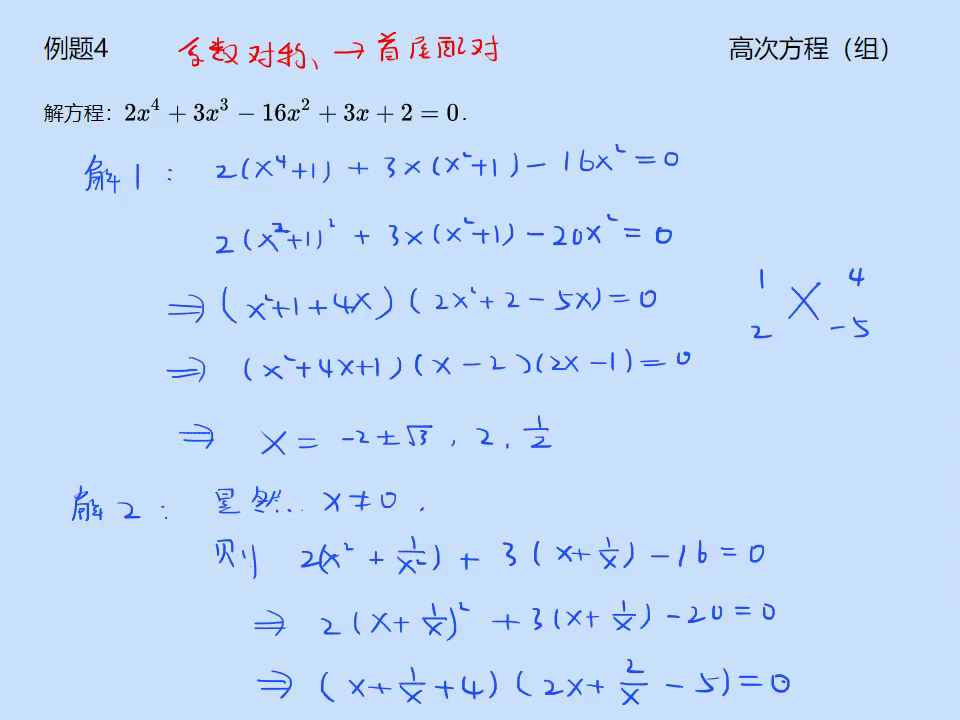 例题4 系数对称、→首尾配对 高次方程（组）
解方程：2x⁴ + 3x³ − 16x² + 3x + 2 = 0.
解1： 2(x⁴+1) + 3x(x²+1) − 16x² = 0
2(x²+1)² + 3x(x²+1) − 20x² = 0
⇒ (x²+1+4x)(2x²+2−5x) = 0
1 4
2 −5
⇒ (x²+4x+1)(x−2)(2x−1) = 0
⇒ x = −2±√3 , 2 , 1/2
解2： 显然、x≠0 ,
则 2(x² + 1/x²) + 3(x+1/x) − 16 = 0
⇒ 2(x+1/x)² + 3(x+1/x) − 20 = 0
⇒ (x+1/x+4)(2x+2/x−5) = 0